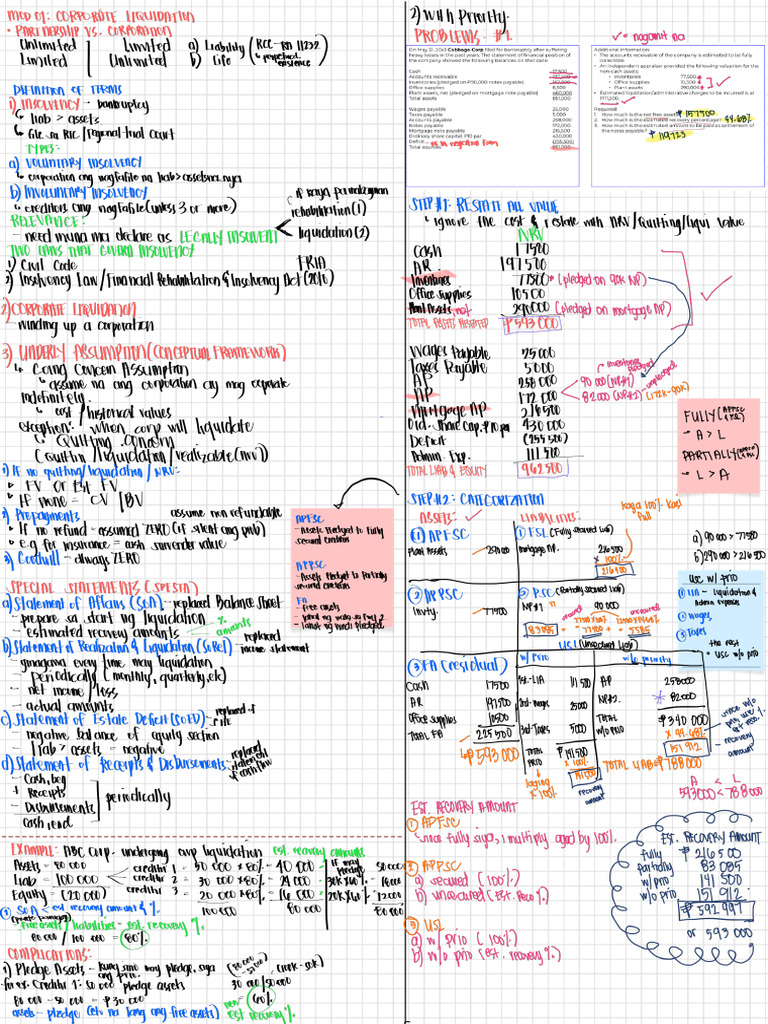 MOD 01: CORPORATE LIQUIDATION
• PARTNERSHIP VS. CORPORATION
Unlimited Limited a) Liability
Limited Unlimited b) Life
RCC - RA 11232
↳ perpetual existence
DEFINITION OF TERMS
1) INSOLVENCY - bankruptcy
↳ liab > assets
↳ file sa RTC / regional trial court
TYPES:
a) VOLUNTARY INSOLVENCY
↳ corporation ang magfafile na liab > assets
b) INVOLUNTARY INSOLVENCY
↳ creditors ang magfafile (unless 3 or more)
RELEVANCE:
- need muna ma declare as LEGALLY INSOLVENT
rehabilitation (1)
liquidation (2)
TWO LAWS THAT GOVERN INSOLVENCY
1) Civil Code
FRIA
2) Insolvency Law / Financial Rehabilitation & Insolvency Act (2010)
2) CORPORATE LIQUIDATION
- winding up a corporation
3) UNDERLY ASSUMPTION (CONCEPTUAL FRAMEWORK)
↳ Going Concern Assumption
↳ assume na ang corporation ay mag ooperate indefinitely.
↳ cost / historical values
exception: when corp will liquidate
↳ Quitting concern
(quitting / liquidation / realizable (NRV)
1) If no quitting / liquidation / NRV:
↳ FV or Est FV
↳ If none = CV / BV
2) Prepayments
assume non refundable
↳ If no refund - assumed ZERO (if silent ang prob)
↳ e.g. for insurance = cash surrender value
3) Goodwill - always ZERO
APFSC
- Assets Pledged to Fully secured creditors
APPSC
- Assets Pledged to Partially secured creditors
FA
- free assets
SPECIAL STATEMENTS (SPESTA)
a) Statement of Affairs (SoA) - replaced Balance Sheet
- prepare sa start ng liquidation
- estimated recovery amounts
% amounts
b) Statement of Realization & Liquidation (SoReL)
replaced income statement
- ginagawa every time may liquidation
periodically (monthly, quarterly, etc)
- net income / loss
- actual amounts
c) Statement of Estate Deficit (SOED)
- negative balance of equity section
- liab > assets = negative
d) Statement of Receipts & Disbursements
replaced statement of cash flow
- Cash, beg
+ Receipts
- Disbursements
Cash, end
periodically
EXAMPLE: ABC Corp. undergoing corp liquidation
est. recovery amounts
Assets = 80 000
Liab = 100 000
Equity = (20 000)
creditor 1 = 50 000 × 80% = 40 000
creditor 2 = 30 000 × 80% = 24 000
creditor 3 = 20 000 × 80% = 16 000
100 000
80 000
if may pledge
50 000
30K × 60% = 18000
20K × 60% = 12000
80 000
1) SoA = est recovery amount & %
free assets / liabilities = est. recovery %
80 000 / 100 000 = 80%
COMPLICATIONS:
1) Pledge Assets - kung sino may pledge, siya ang prio.
for ex. Creditor 1: 50 000 pledge assets
80 000 - 50 000 = ₱30 000
30 000 / 50 000
60%
new est recovery %
assets - pledge (eto na lang ang free assets)
2) With Priority.
PROBLEMS: #1.
= nagamit na
On May 31, 20x1 Cabbage Corp filed for bankruptcy after suffering
heavy losses in the past years. The statement of financial position of
the company showed the following balances on that date:
Cash 17,500
Accounts receivable 197,500
Inventories (pledged on P90,000 notes payable)
Office supplies 8,500
Plant assets, net (pledged on mortgage note payable) 460,000
Total assets 881,000
Wages payable 25,000
Taxes payable 5,000
Accounts payable 258,000
Notes payable 172,000
Mortgage note payable 216,500
Ordinary share capital, P10 par 430,000
Deficit (255,500)
as in negative form
Total equities 851,000
Additional information:
• The accounts receivable of the company is estimated to be fully
collectible.
• An independent appraiser provided the following valuation for the
non-cash assets:
• Inventories 77,500
• Office supplies 10,500
• Plant assets 290,000
• Estimated liquidation/administrative charges to be incurred is at
P111,500.
Required:
1. How much is the net free assets?
2. How much is the estimated recovery percentage? 44.68%
3. How much is the estimated amount to be paid as settlement of
the notes payable?
₱ 119,723
STEP #1: RESTATE ALL VALUE
↳ ignore the cost & restate with NRV/Quitting/liqui value
NRV
Cash 17500
AR 197500
Inventories 77500 * (pledged on 90K NP)
Office Supplies 10500
Plant Assets, net 290000 (pledged on mortgage NP)
TOTAL ASSETS RESTATED ₱593 000
Wages Payable 25 000
Taxes Payable 5 000
AP 258 000
NP 172 000
90 000 (NP#1)
inventories pledged
82 000 (NP#2)
unpledged
(172K-90K)
Mortgage NP 216 500
Ord. Share Cap. ₱10 par 430 000
Deficit (255 500)
Admin. Exp. 111 500
TOTAL LIAB & EQUITY 962 500
FULLY (APFSC & FSL)
- A > L
PARTIALLY
- L > A
STEP #2: CATEGORIZATION
ASSETS: LIABILITIES:
① APFSC
Plant Assets 290000
① FSL (Fully secured liab)
mortgage NP. 216 500
× 100%
216 500
a) 90 000 > 77500
b) 290 000 > 216 500
② APPSC
Invty. 77500
② PSC (Partially secured liab)
NP #1 90 000
secured
unsecured
83 085 = 77500 + 5585
USL w/ prio
① LIA - liquidation & Admin expenses
② Wages
③ Taxes
the rest
= USL w/o prio
USL (Unsecured liab)
③ FA (residual)
Cash 17500
AR 197500
Office supplies 10500
Total FA 225 500
₱593 000
w/ prio
1st - LIA 111 500
2nd - Wages 25000
3rd - Taxes 5000
TOTAL PRIO ₱141 500
× 100%
141 500
recovery amount
w/o priority
AP 258000
NP#2 * 82000
TOTAL W/O PRIO ₱340 000
× 44.68%
151 912
recovery amount
TOTAL LIAB ₱788 000
A < L
593 000 < 788 000
EST. RECOVERY AMOUNT
① APFSC
Since fully siya, i multiply agad by 100%.
② APPSC
a) secured (100%)
b) unsecured (Est. Reco %)
③ USL
a) w/ prio (100%)
b) w/o prio (est. recovery %)
EST. RECOVERY AMOUNT
fully ₱ 216 500
partially 83 085
w/ prio 141 500
w/o prio 151 912
₱ 592 997
or 593 000